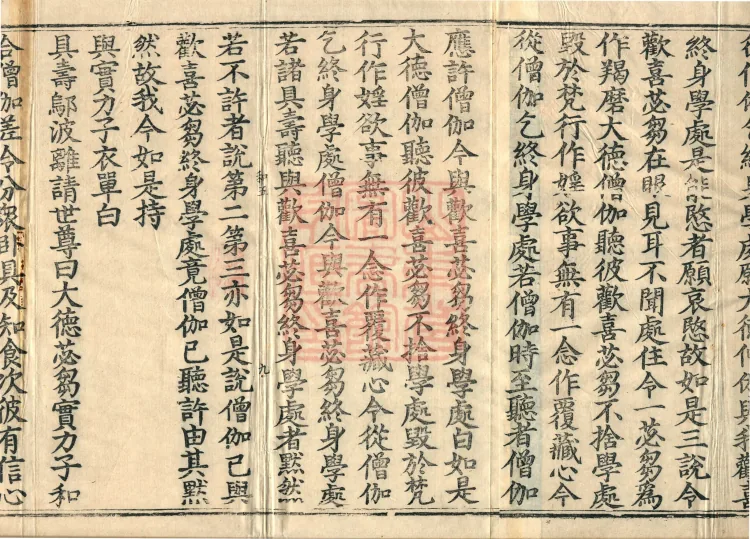 與我歡喜
終身學處是能愍者願哀愍故如是三說令
歡喜苾芻在眼見耳不聞處住令一苾芻為
作羯磨大德僧伽聽彼歡喜苾芻不捨學處
毀於梵行作婬欲事無有一念作覆藏心今
從僧伽乞終身學處若僧伽時至聽者僧伽
應許僧伽今與歡喜苾芻終身學處白如是
大德僧伽聽彼歡喜苾芻不捨學處毀於梵
行作婬欲事無有一念作覆藏心今從僧伽
乞終身學處僧伽今與歡喜苾芻終身學處
若諸具壽聽與歡喜苾芻終身學處者默然
九
若不許者說第二第三亦如是說僧伽已與
歡喜苾芻終身學處竟僧伽已聽許由其默
然故我今如是持
與實力子衣單白
具壽鄔波離請世尊曰大德苾芻實力子和
合僧伽差令分臥具及知食次彼有信心